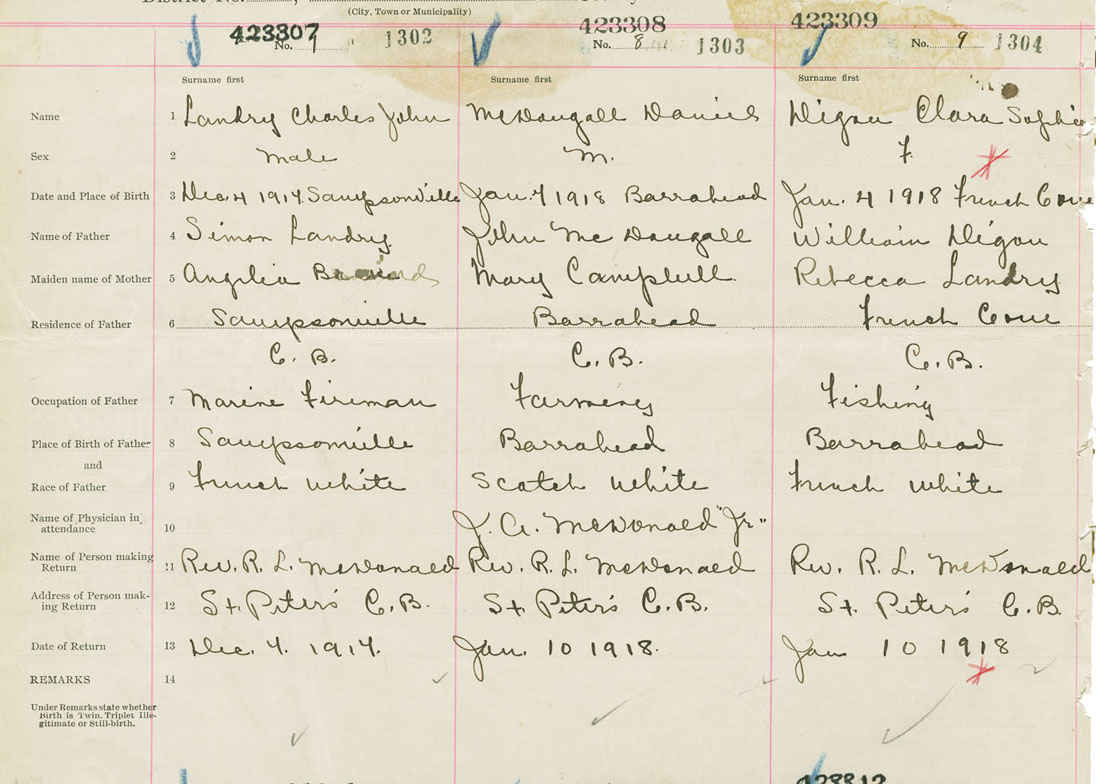 District No.
(City, Town or Municipality)
423307 423308 423309
No. 7 1302 No. 8 1303 No. 9 1304
Surname first Surname first Surname first
Name 1 Landry Charles John McDougall Daniel Digou Clara Sophie
Sex 2 Male M. F.
Date and Place of Birth 3 Dec. 4 1917. Sampsonville Jan. 7 1918 Barrahead Jan. 4 1918 French Cove
Name of Father 4 Simon Landry John McDougall William Digou
Maiden name of Mother 5 Anglia Mary Campbell Rebecca Landry
Residence of Father 6 Sampsonville Barrahead French Cove
C. B. C. B. C. B.
Occupation of Father 7 Marine Fireman Farming Fishing
Place of Birth of Father 8 Sampsonville Barrahead Barrahead
and
Race of Father 9 French White Scotch White French White
Name of Physician in attendance 10 J. A. McDonald "Jr"
Name of Person making Return 11 Rev. R. L. McDonald Rev. R. L. McDonald Rev. R. L. McDonald
Address of Person making Return 12 St. Peter's C. B. St. Peter's C. B. St. Peter's C. B.
Date of Return 13 Dec. 4. 1917. Jan. 10 1918. Jan 10 1918
REMARKS 14
Under Remarks state whether
Birth is Twin, Triplet Ille-
gitimate or Still-birth.